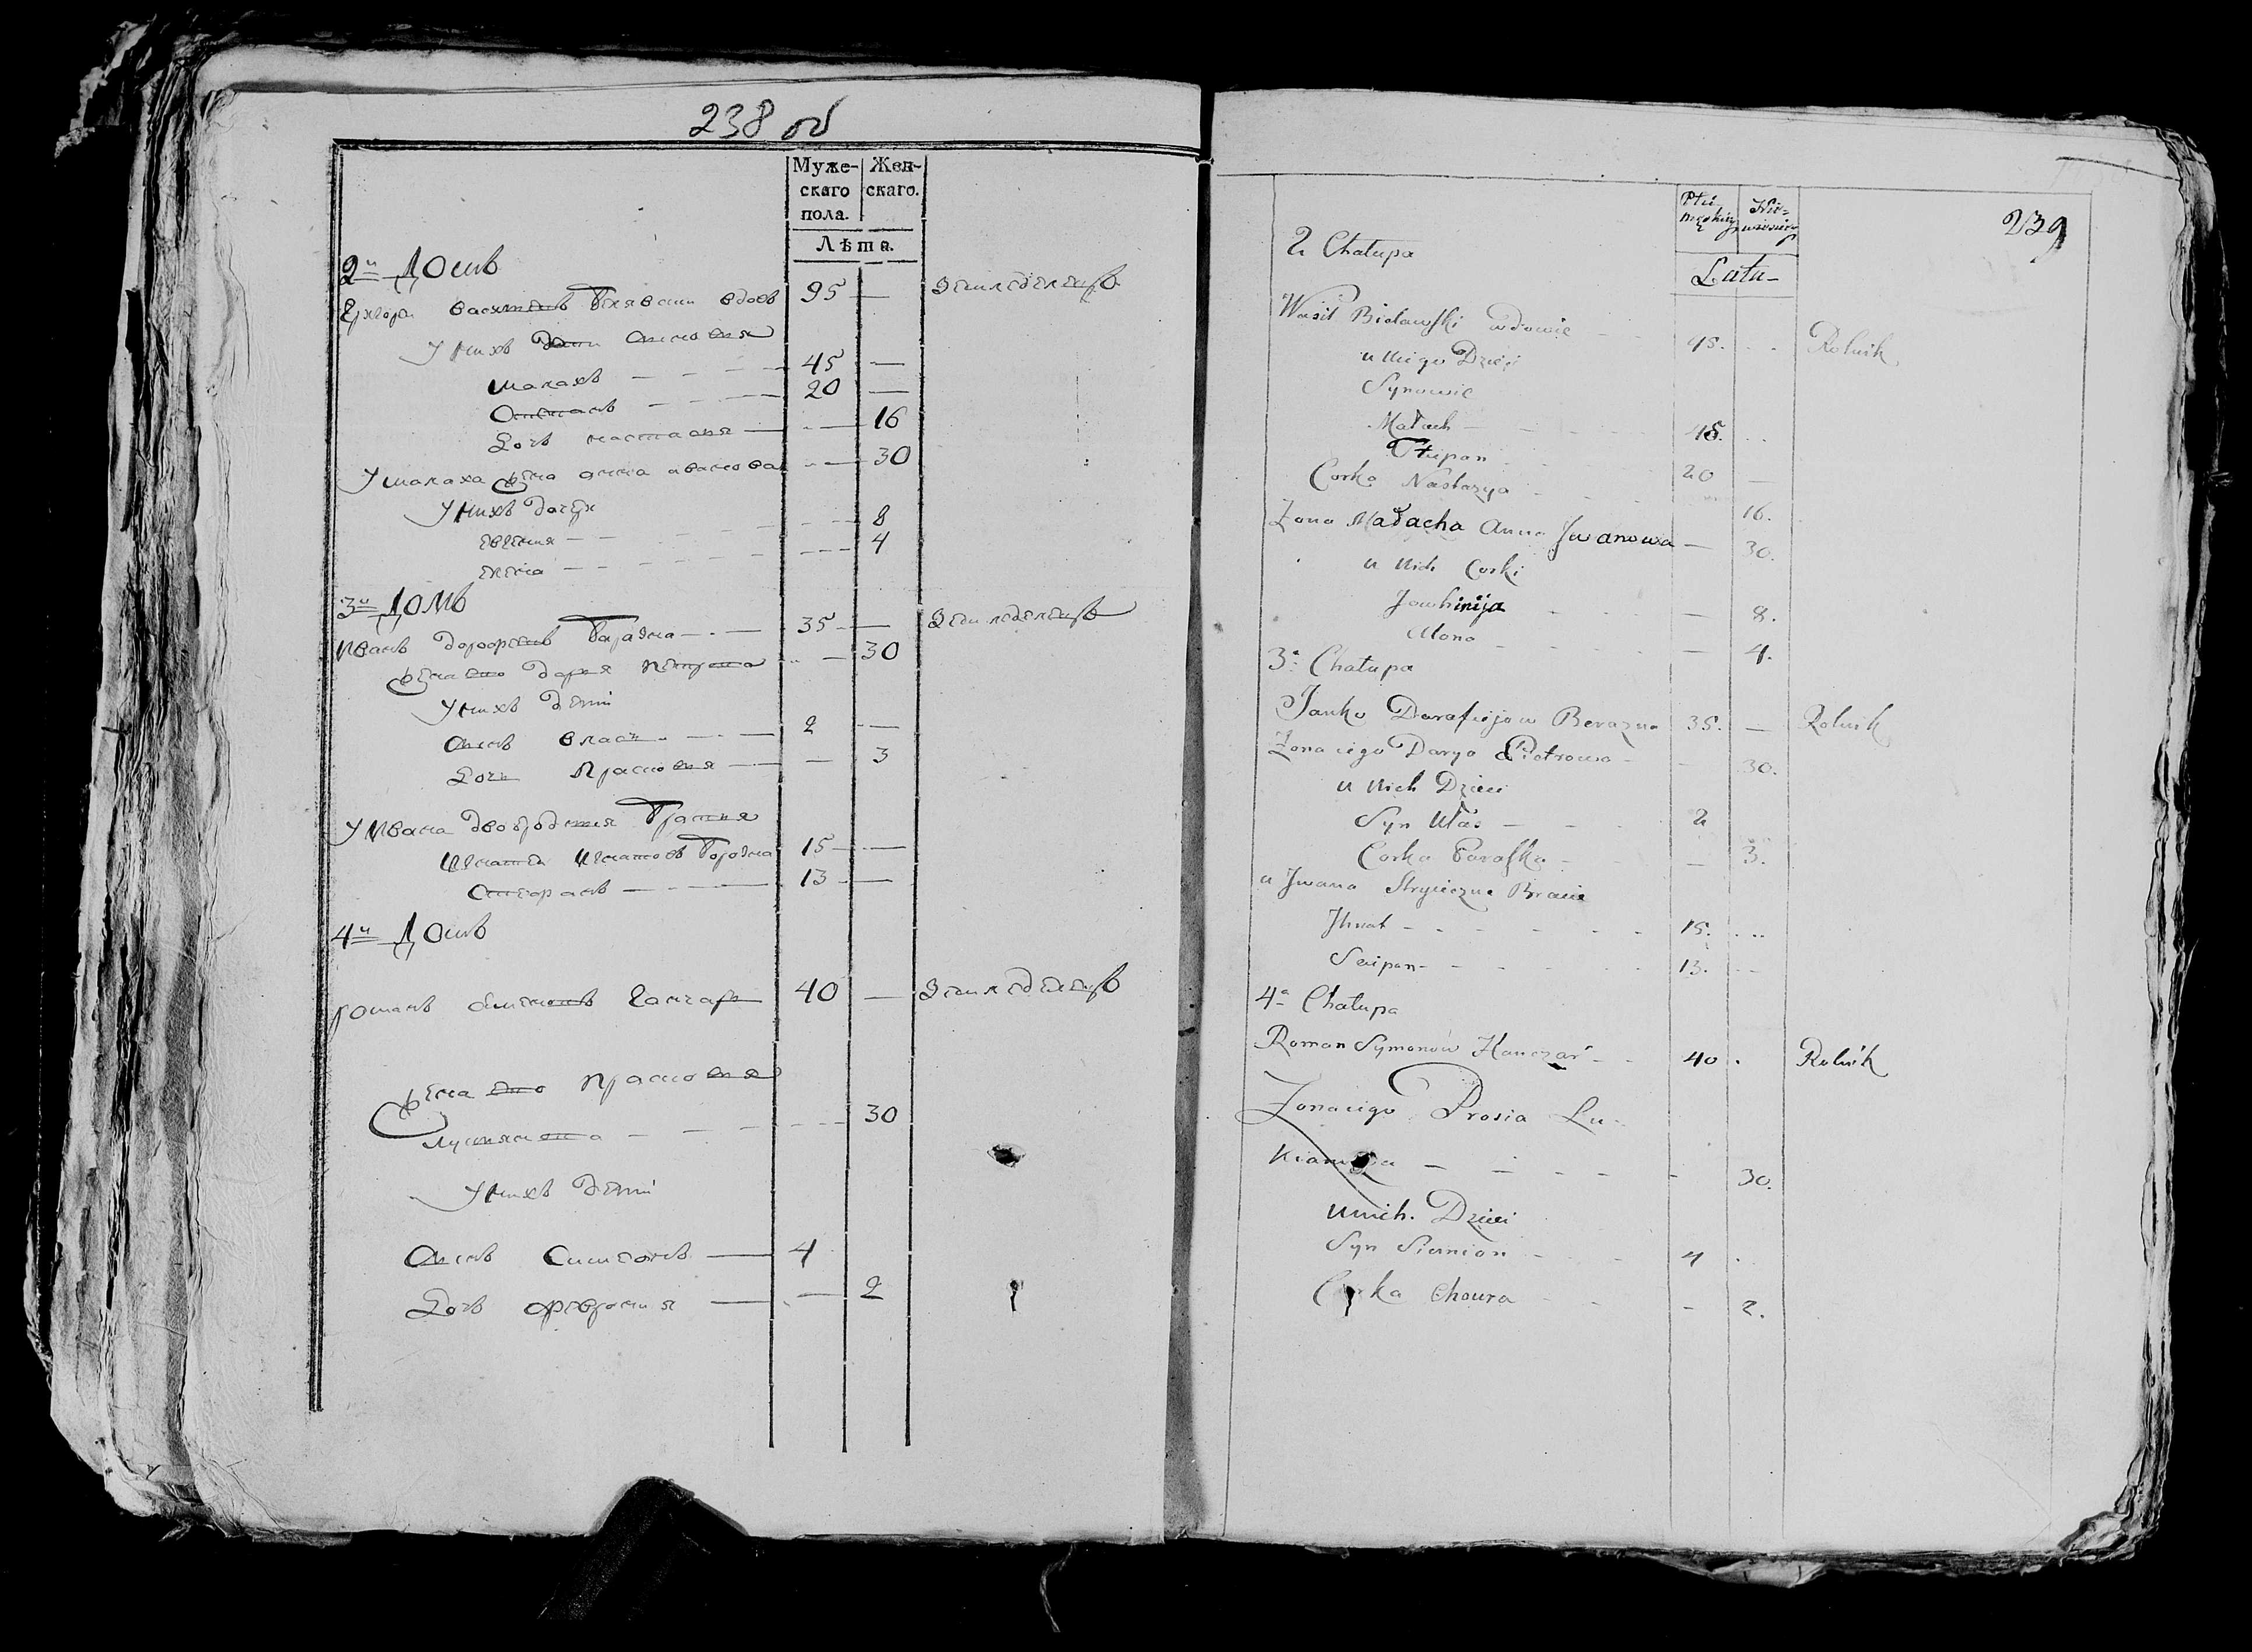 238 об
Муже-
скаго
пола.
Жен-
скаго.
Лѣта.
2й Домъ
вдовъ 95 — Земледелецъ
У нихъ сыновья
Малахъ — 45 —
Степанъ — 20 —
Дочь настасия — 16
У малаха жена анна иванова — 30
У нихъ дочери
евгения — 8
елена — 4
3й Домъ
Иванъ Борозна — 35 — Земледелецъ
жена его дарья петрова — 30
У нихъ дети
Сынъ власъ — 2 —
Дочь Прасковия — 3
У Ивана двоюродныя Братья
Игнатей Игнатовъ Борозна 15 —
13 —
4й Домъ
романъ Гончаръ 40 — Земледелецъ
жена его прасковия
30
У нихъ дети
Сынъ Симеонъ — 4
Дочь феврония — 2
239
Płci
męskiej
Lata
2 Chałupa
Wasil Bielawski wdowiec 95. Rolnik
u niego Dzieci
Synowie
Małach — 45.
Stepan 20 —
Corka Nastazya 16.
Zona Małacha Anna Jwanowa — 30.
u nich Corki
Jawhinija — 8.
Alona — 4.
3a Chałupa
Janko Darafiejow Berazna 35. — Rolnik
Zona iego Darya Piotrowa — 30.
u nich Dzieci
Syn Ułas — 2
Corka Paraska — 3.
u Jwana Stryieczne Bracia
Jhnat — 15.
13.
4a Chałupa
Roman Symonow Hanczar — 40. Rolnik
Zona iego Prosia Lu-
kianowa — 30.
u nich. Dzieci
Syn Siemion 4
Corka Chaura — 2.